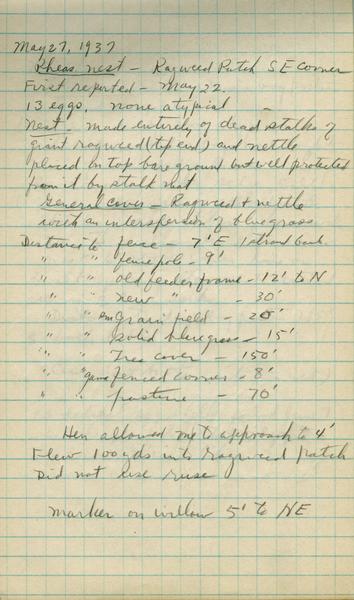 May 27, 1937
Pheas nest - Ragweed Patch SE corner
First reported - May 22.
13 eggs, none atypical -
Nest - made entirely of dead stalks of
giant ragweed (tip end) and nettle
placed on top bare ground but well protected
from it by stalk mat
General cover - Ragweed + nettle
with an interspersion of bluegrass
Distance to fence - 7' E 1 strand barb.
" " fence pole - 9'
" " old feeder frame - 12' to N
" " new " - 30'
" " grain field - 20'
" " solid bluegrass - 15'
" " Tree cover - 150'
" " fenced corner - 8'
" " pasture - 70'
Hen allowed me to approach to 4'
Flew 100 yds into ragweed patch
Did not use ruse
Marker on willow 5' to NE